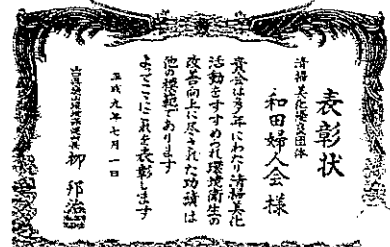 表彰状
清掃美化優良団体
和田婦人会様
貴会は多年にわたり清掃美化
活動をすすめられ環境衛生の
改善向上に尽された功績は
他の模範であります
よってここにこれを表彰します
平成九年七月一日
柳邦治